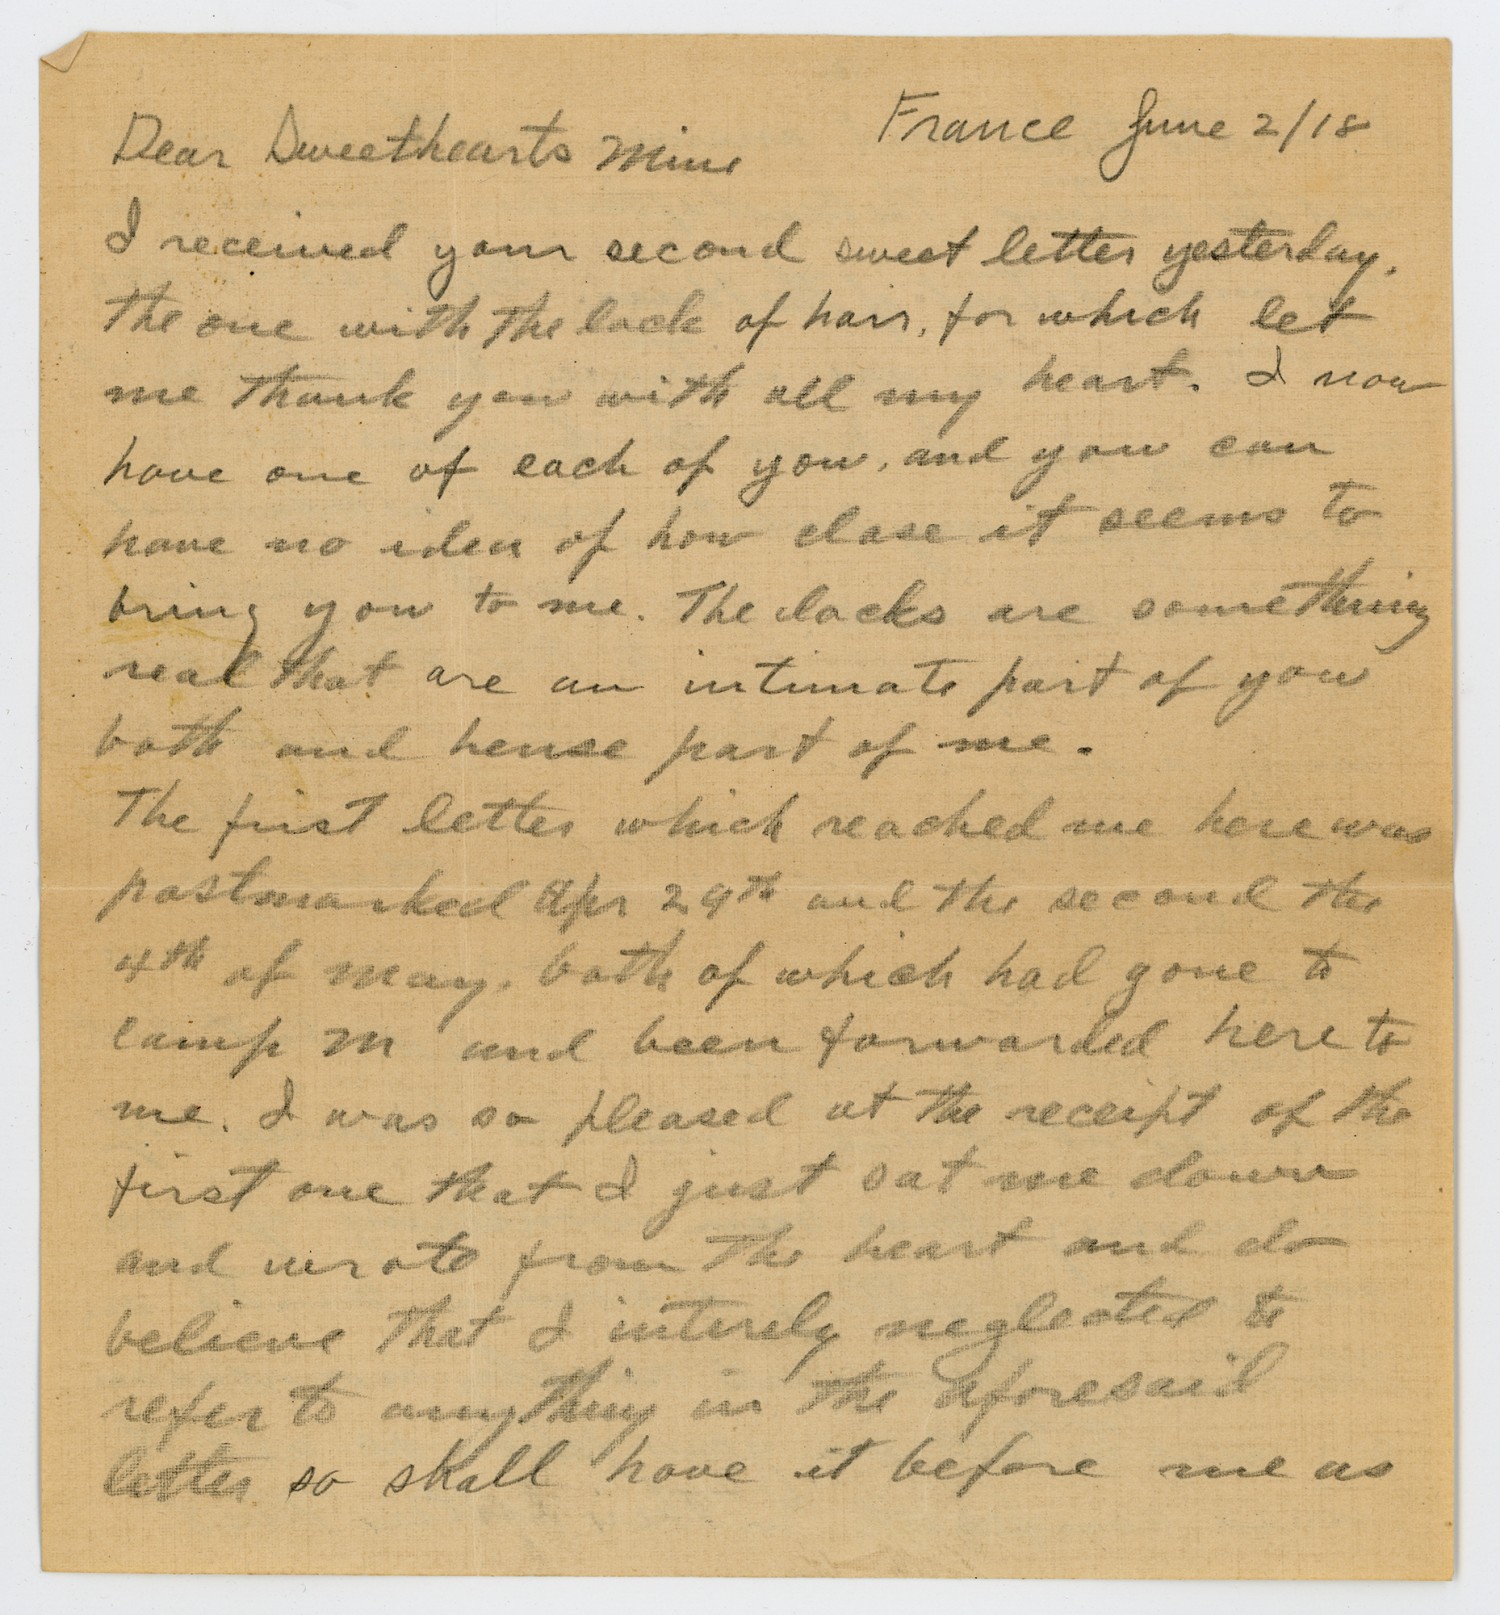 France June 2/18
Dear Sweethearts Mine
I received your second sweet letter yesterday.
The one with the lock of hair, for which let
me thank you with all my heart. I now
have one of each of you, and you can
have no idea of how close it seems to
bring you to me. The locks are something
real that are an intimate part of you
both and hense part of me.
The first letter which reached me here was
postmarked Apr 29th and the second the
4th of May, both of which had gone to
Camp M and been forwarded here to
me. I was so pleased at the receipt of the
first one that I just sat me down
and wrote from the heart and do
believe that I intirely neglected to
refer to anything in the aforesaid
letter so shall have it before me as